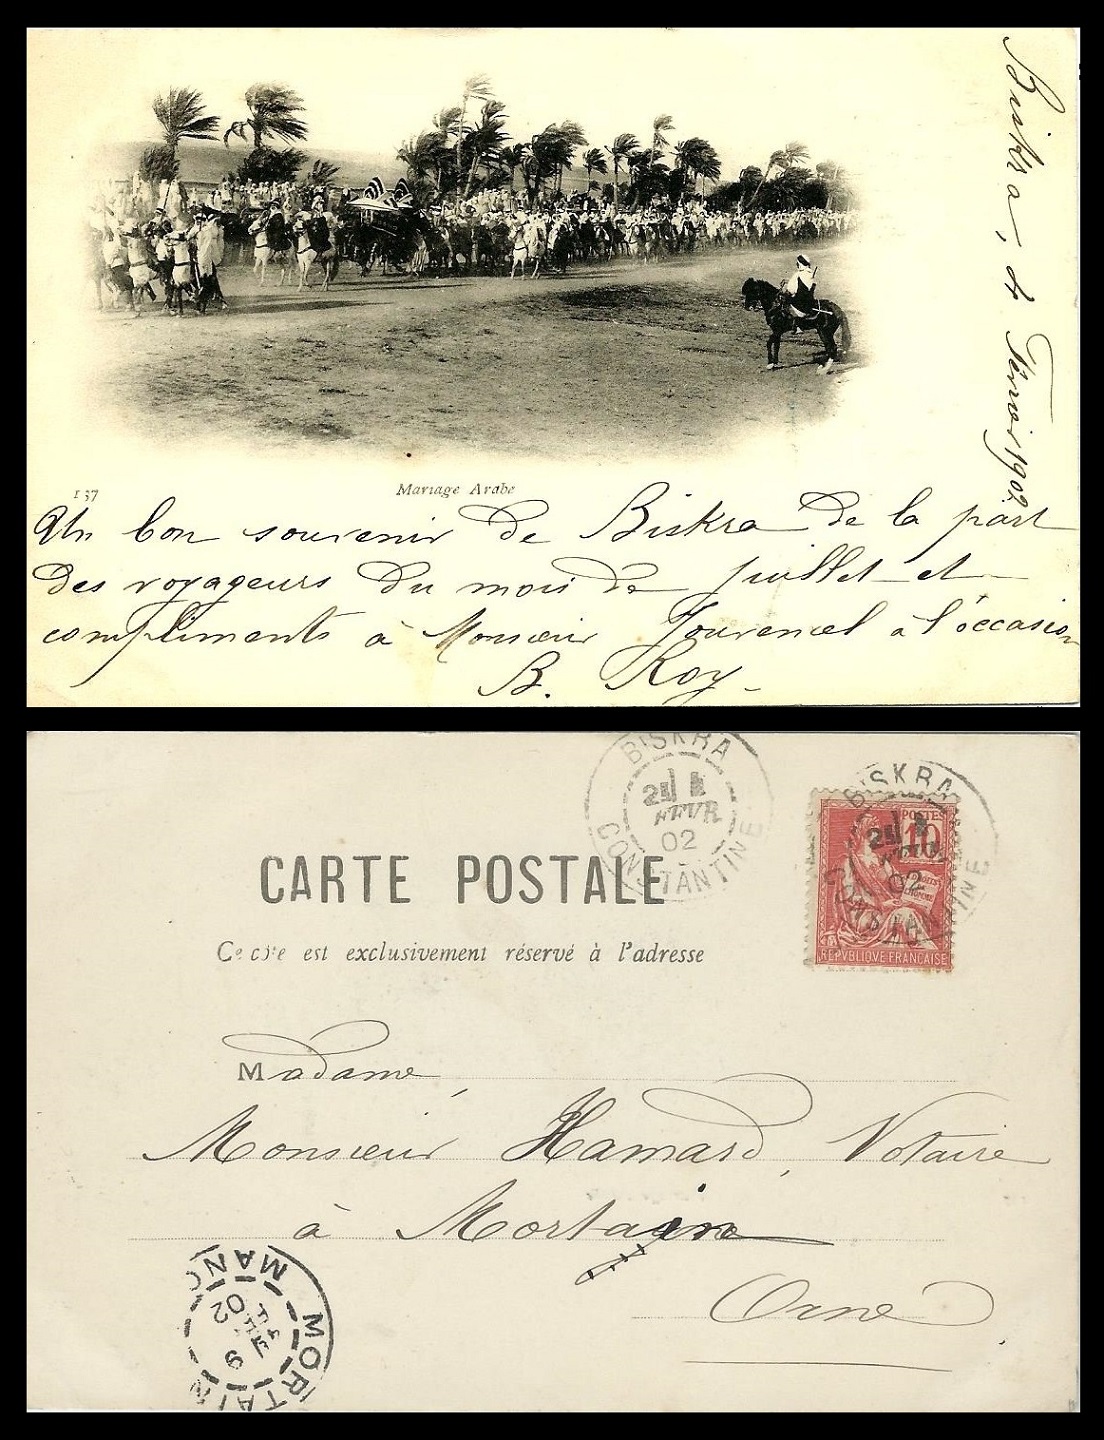 Biskra, 4 Février 1902
137
Mariage Arabe
Un bon souvenir de Biskra de la part
des voyageurs du mois de juillet et
compliments à Monsieur Fourencel à l'occasion
B. Roy
BISKRA
FEVR
02
CONSTANTINE
BISKRA
FEVR
02
CONSTANTINE
POSTES
10
REPVBLIQVE FRANCAISE
CARTE POSTALE
Ce côté est exclusivement réservé à l'adresse
Madame,
Monsieur Hamard, Notaire
à Mortain
Orne
MORTAIN
MANC
9
02